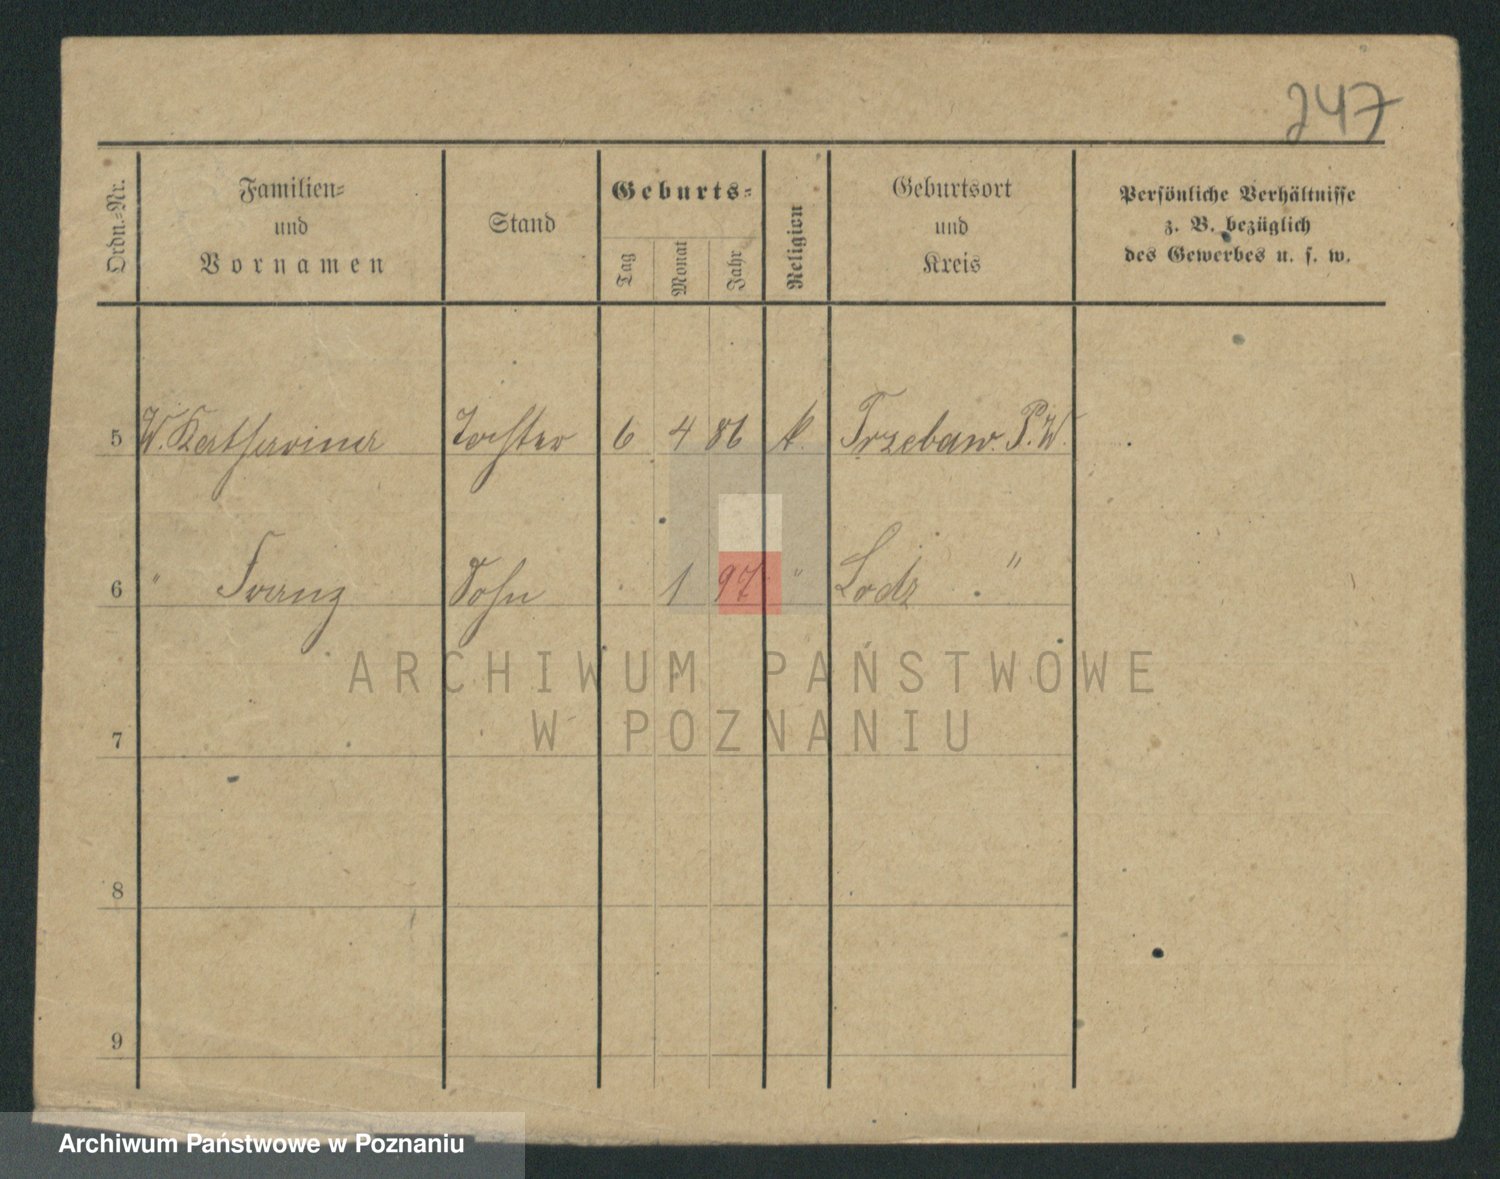 247
Ordn.-Nr.
Familien-
und
Vornamen
Stand
Geburts-
Tag
Monat
Jahr
Religion
Geburtsort
und
Kreis
Persönliche Verhältnisse
z. B. bezüglich
des Gewerbes u. s. w.
5 W. Katharina Tochter 6 4 86 k. Trzebaw. P.W.
6 " Franz Sohn 1 97 " Lodz "
ARCHIWUM PAŃSTWOWE
W POZNANIU
7
8
9
Archiwum Państwowe w Poznaniu